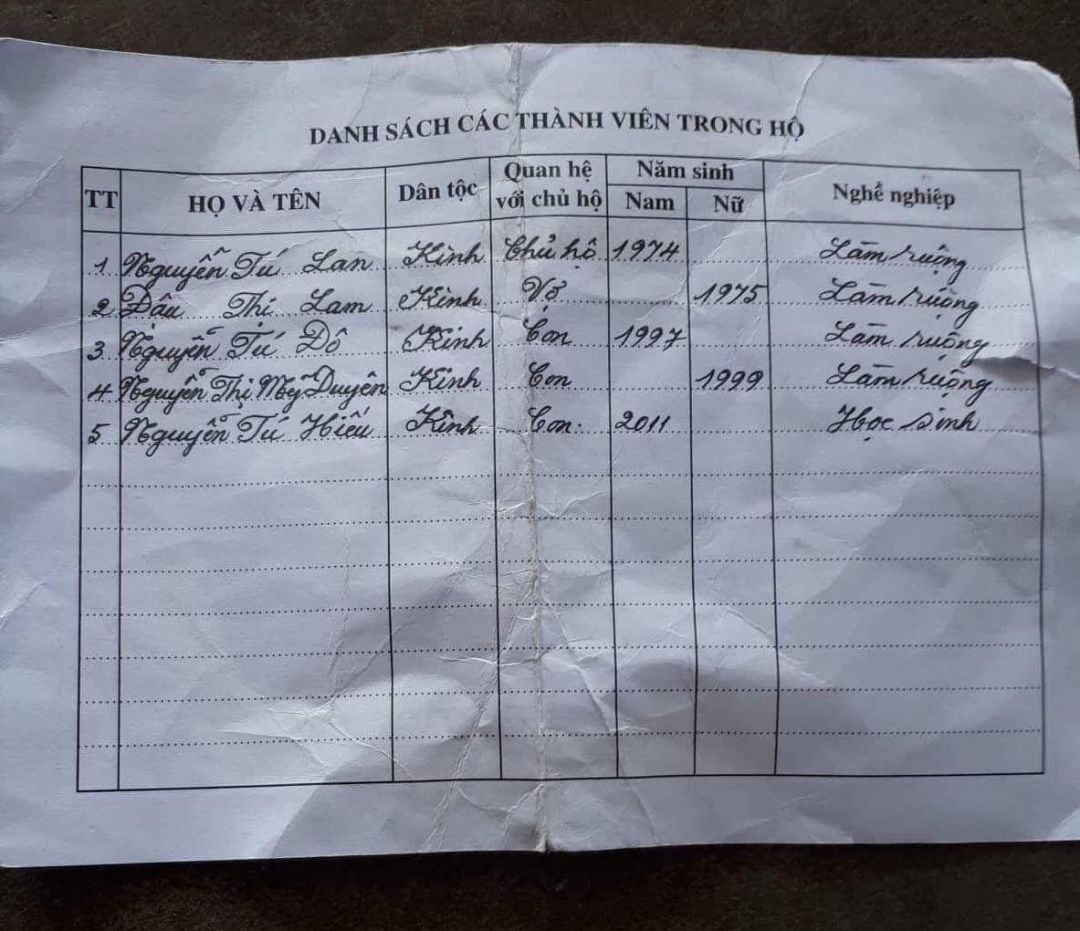 DANH SÁCH CÁC THÀNH VIÊN TRONG HỘ
TT HỌ VÀ TÊN Dân tộc Quan hệ với chủ hộ Năm sinh Nghề nghiệp
Nam Nữ
1 Nguyễn Tú Lan Kinh Chủ hộ 1974 Làm ruộng
2 Đậu Thị Lam Kinh Vợ 1975 Làm ruộng
3 Nguyễn Tú Đô Kinh Con 1997 Làm ruộng
4 Nguyễn Thị Mỹ Duyên Kinh Con 1999 Làm ruộng
5 Nguyễn Tú Hiếu Kinh Con. 2011 Học sinh